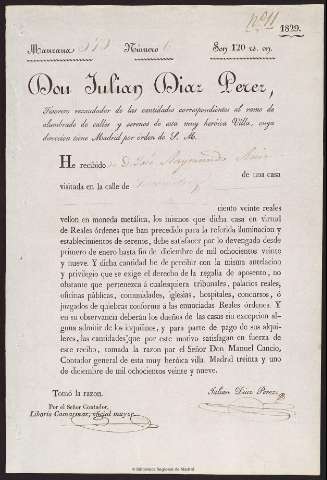 nº 11
1829.
Manzana 
Número 
Son 120 rs. vn.
Don Julian Diaz Perez,
Tesorero recaudador de las cantidades correspondientes al ramo de
alumbrado de calles y serenos de esta muy heróica Villa, cuya
direccion tiene Madrid por órden de S. M.
He recibido de D. José Raymundo
de una casa
visitada en la calle de
ciento veinte reales
vellon en moneda metálica, los mismos que dicha casa en virtud
de Reales órdenes que han precedido para la referida iluminacion y
establecimientos de serenos, debe satisfacer por lo devengado desde
primero de enero hasta fin de diciembre de mil ochocientos veinte
y nueve. Y dicha cantidad he de percibir con la misma antelacion
y privilegio que se exige el derecho de la regalía de aposento, no
obstante que pertenezca á cualesquiera tribunales, palacios reales,
oficinas públicas, comunidades, iglesias, hospitales, concursos, ó
juzgados de quiebras conforme á las enunciadas Reales órdenes. Y
en su observancia deberán los dueños de las casas sin excepcion
alguna admitir de los inquilinos, y para parte de pago de sus alqui-
leres, las cantidades que por este motivo satisfagan en fuerza de
este recibo, tomada la razon por el Señor Don Manuel Cancio,
Contador general de esta muy heróica villa. Madrid treinta y uno
de diciembre de mil ochocientos veinte y nueve.
Tomó la razon.
Julian Diaz Perez.
Por el Señor Contador,
Liborio oficial mayor.
Biblioteca Regional de Madrid